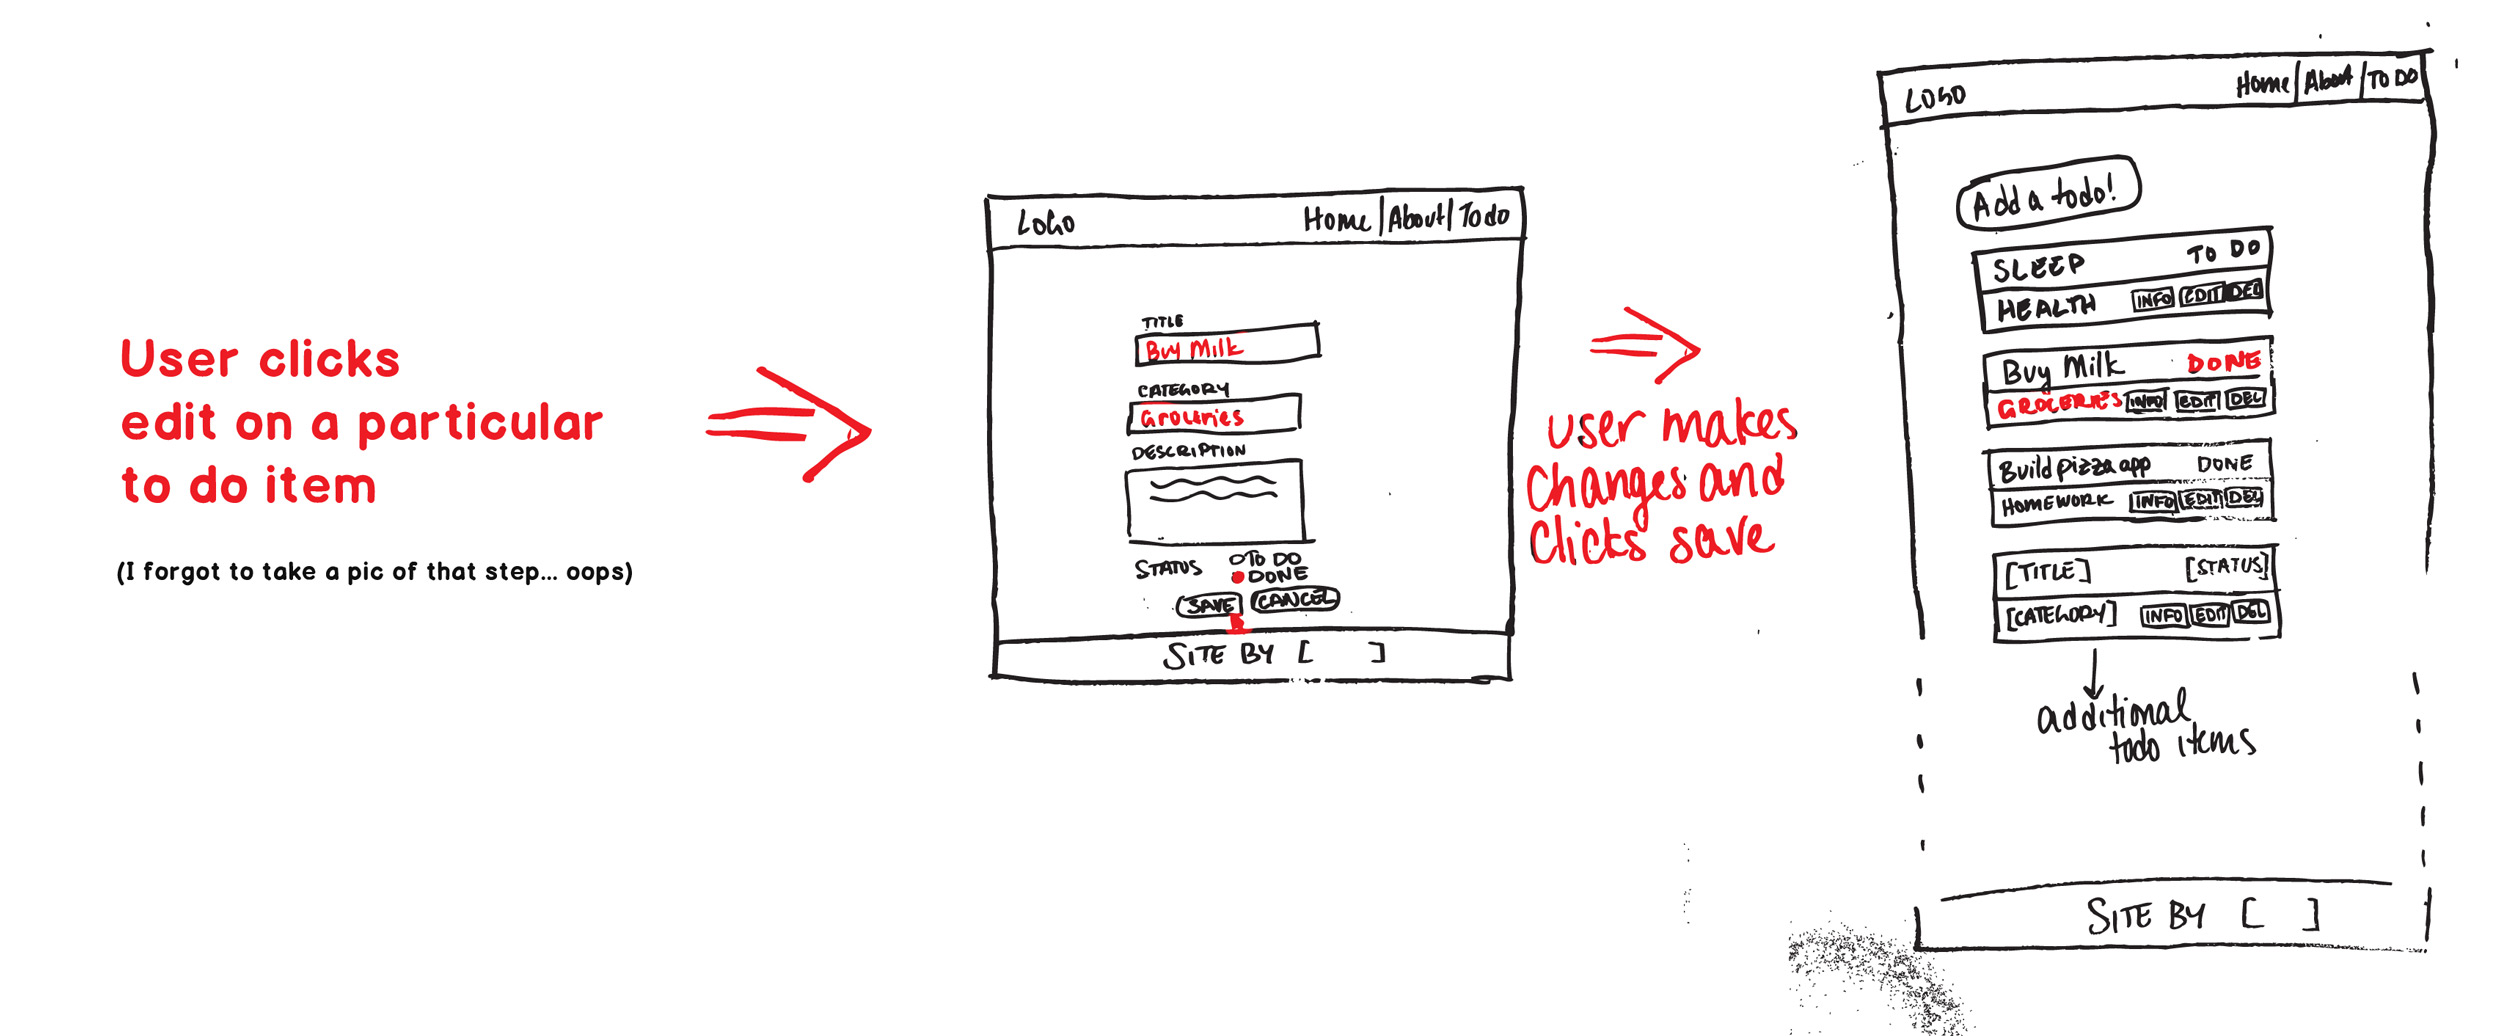 User clicks
edit on a particular
to do item
(I forgot to take a pic of that step... oops)
LOGO
Home | About | Todo
TITLE
Buy Milk
CATEGORY
Groceries
DESCRIPTION
STATUS
TO DO
DONE
SAVE CANCEL
SITE BY [ ]
user makes
changes and
clicks save
LOGO
Home | About | TO DO
Add a todo!
SLEEP TO DO
HEALTH INFO EDIT DEL
Buy Milk DONE
GROCERIES INFO EDIT DEL
Build pizza app DONE
HOMEWORK INFO EDIT DEL
[TITLE] [STATUS]
[CATEGORY] INFO EDIT DEL
additional
todo items
SITE BY [ ]